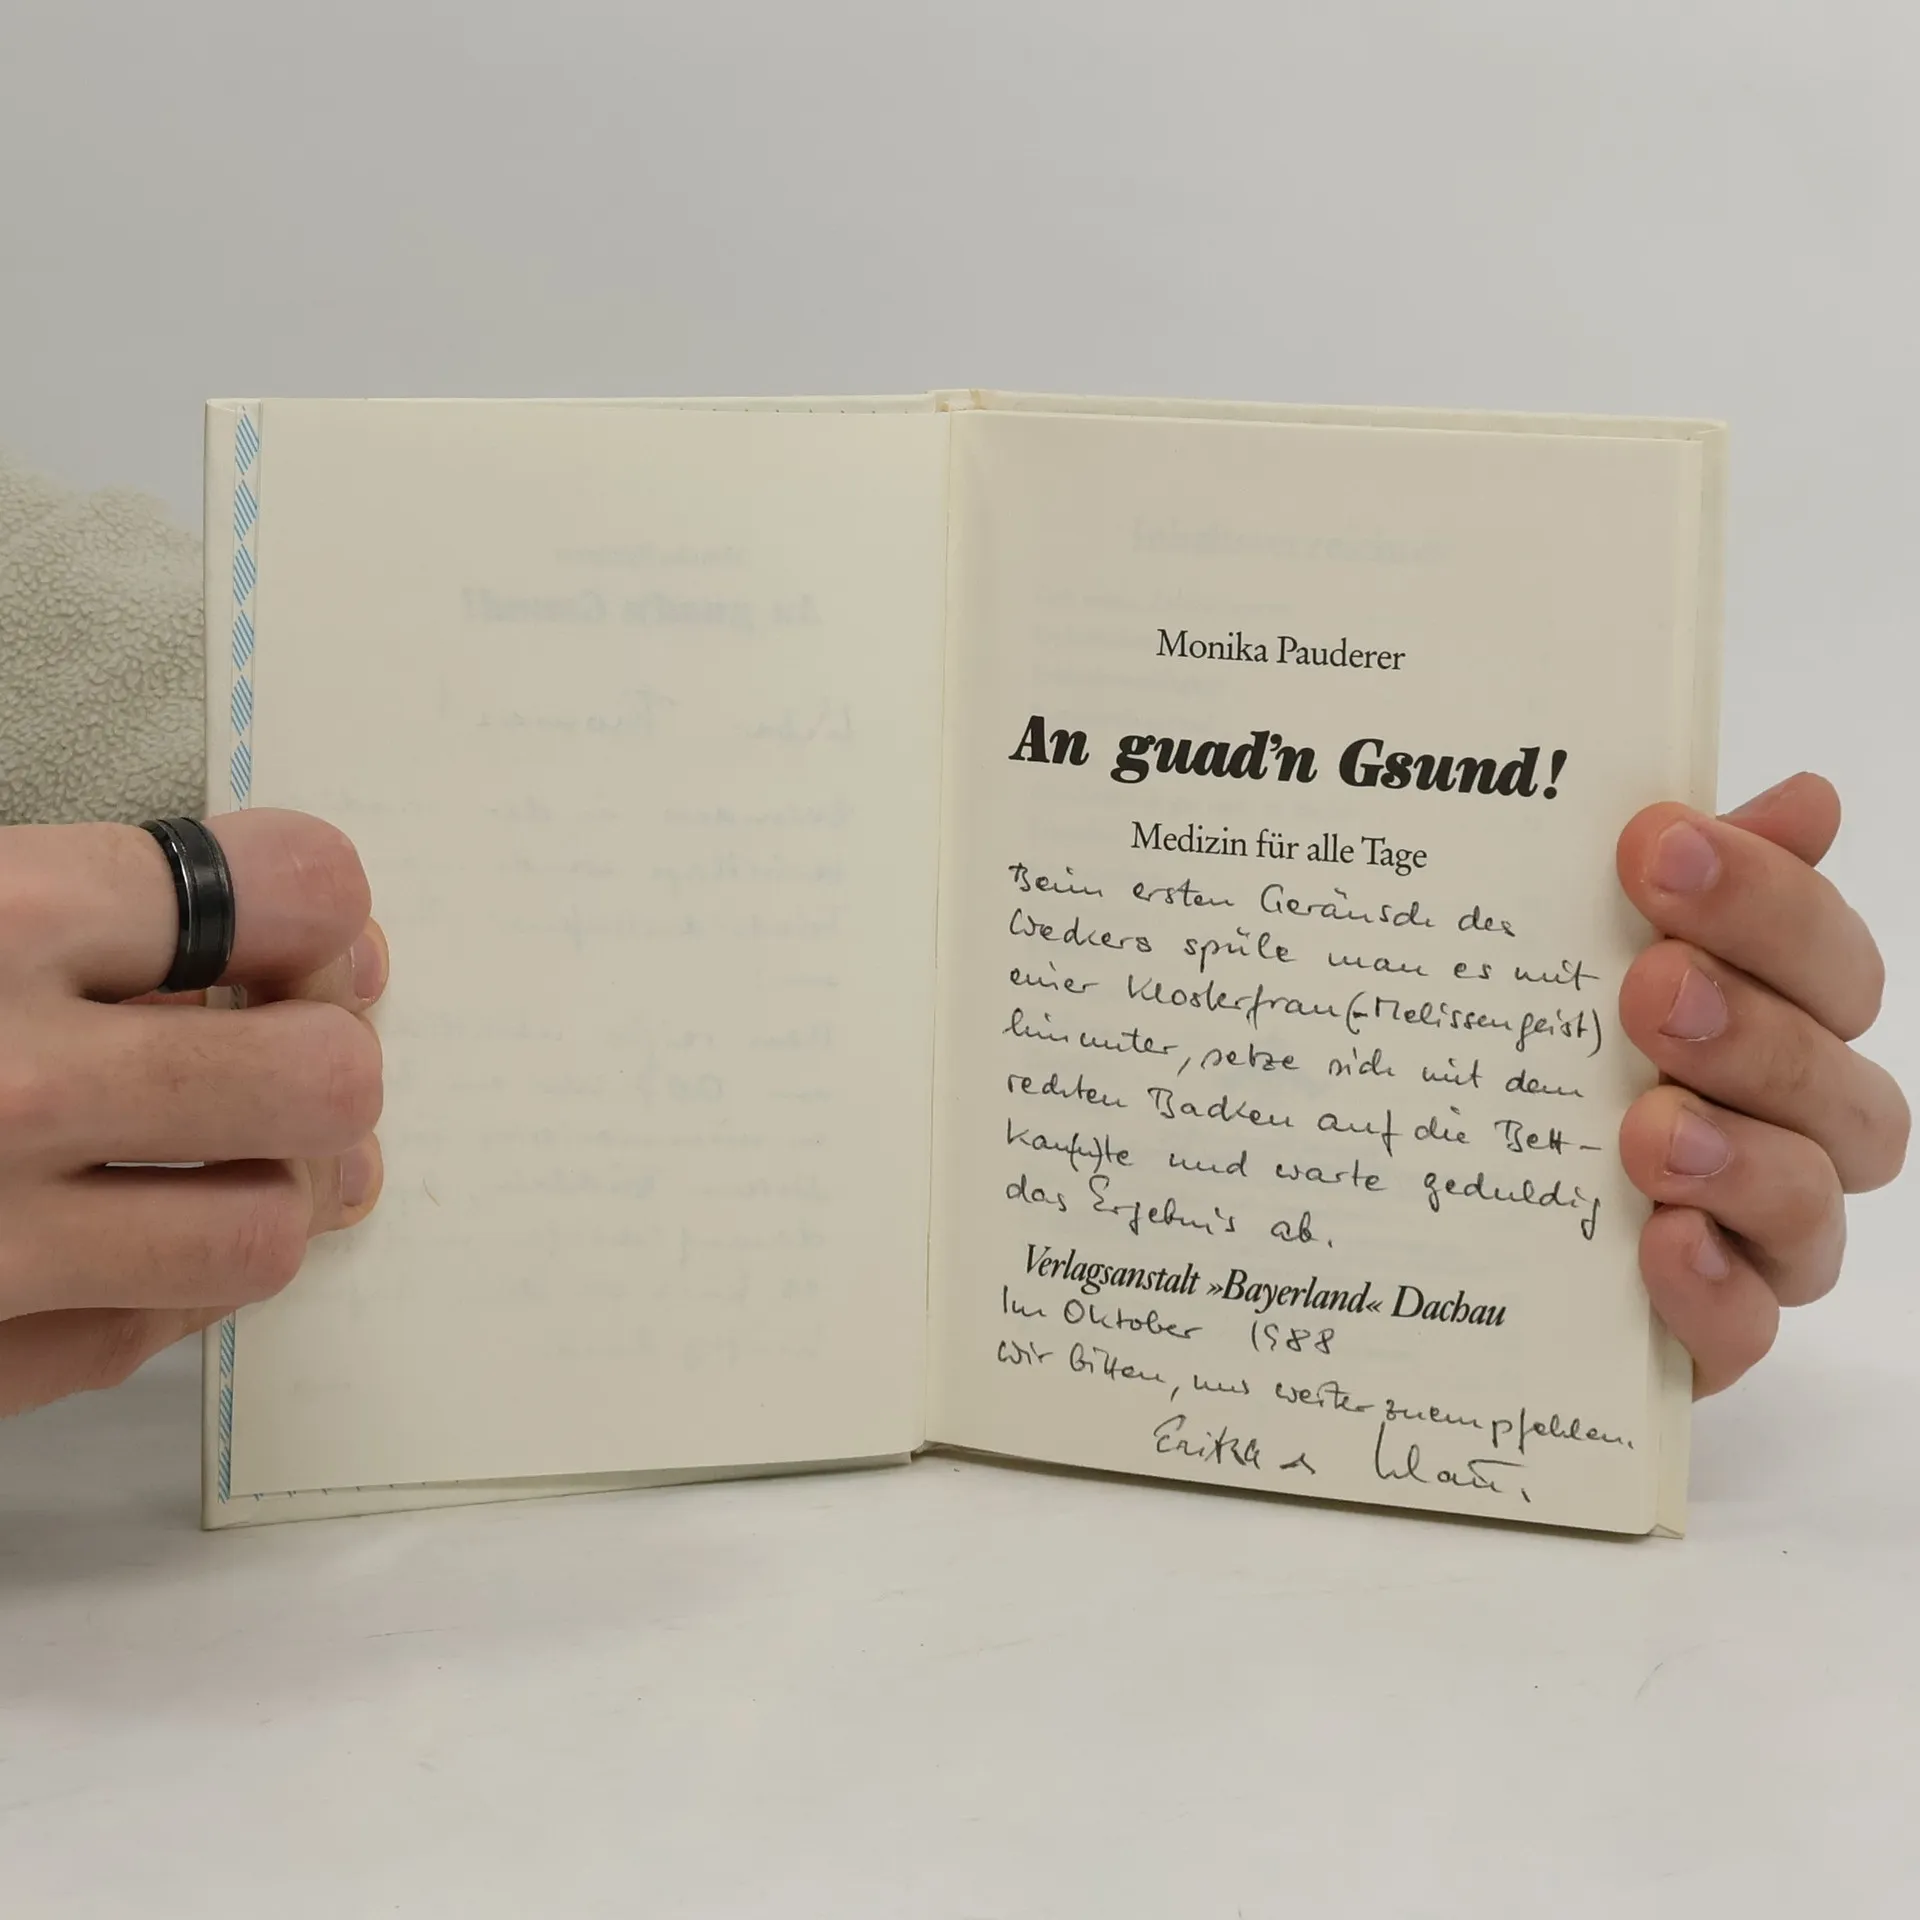 Monika Pauderer
An guad'n Gsund!
Medizin für alle Tage
Beim ersten Geräusch des
Weckers spüle man es mit
einer Klosterfrau(-Melissengeist)
hinunter, setze sich mit dem
rechten Backen auf die Bett-
kan(n)te und warte geduldig
das Ergebnis ab.
Verlagsanstalt »Bayerland« Dachau
Im Oktober 1988
Wir bitten, uns weiterzuempfehlen.
Erika &